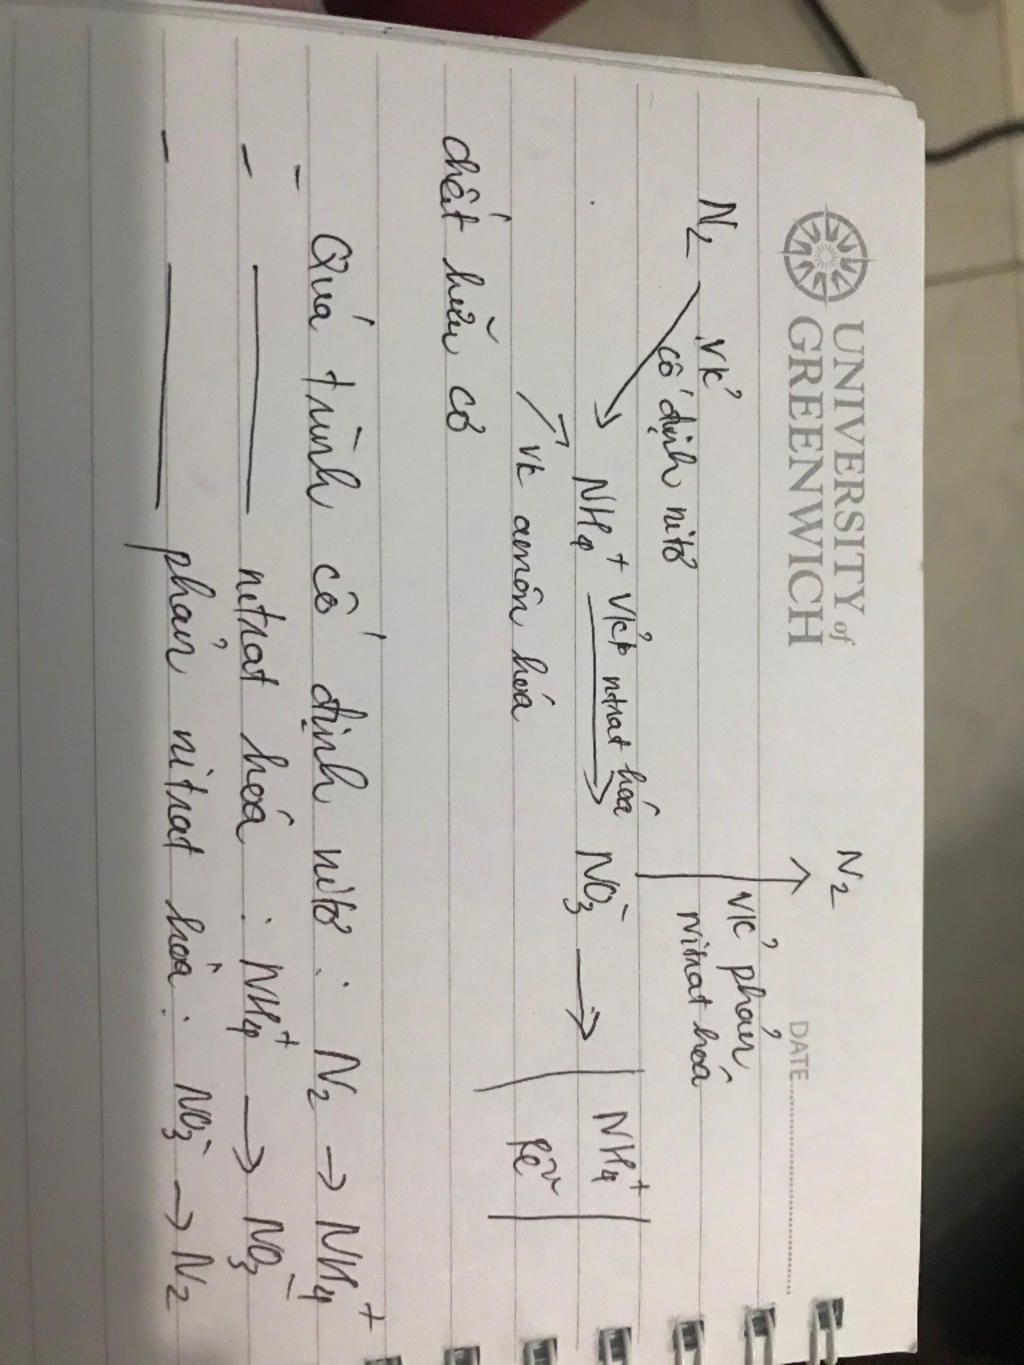 UNIVERSITY of
GREENWICH
DATE
N₂
VK
cố định nitơ
VK phản
nitrat hoá
N₂
NH₄⁺
VK nitrat hóa
NO₃⁻
NH₄⁺
Rễ
VK amôn hóa
chất hữu cơ
- Quá trình cố định nitơ : N₂ → NH₄⁺
- ——— nitrat hoá : NH₄⁺ → NO₃⁻
- ——— phản nitrat hóa : NO₃⁻ → N₂